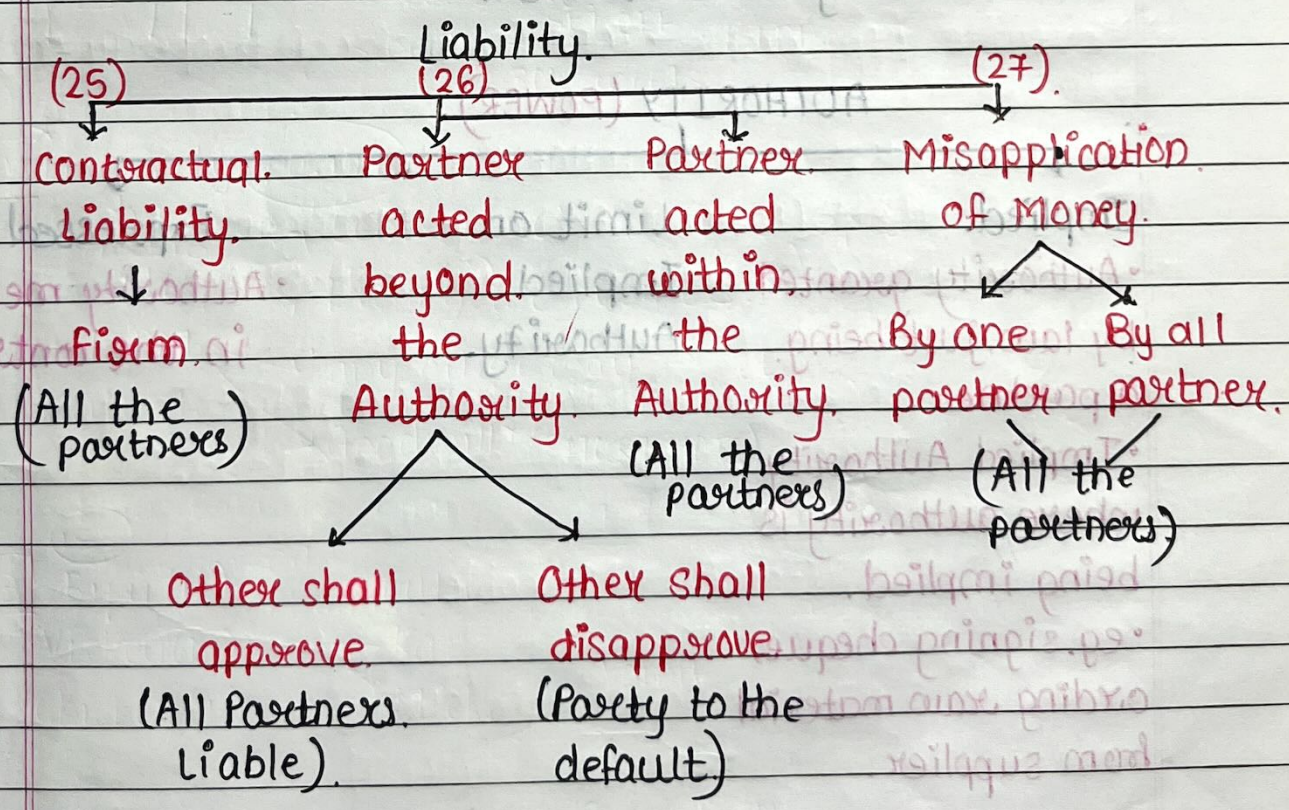 Liability.
(25)
(26)
(27).
Contractual.
Liability.
Firm.
(All the
partners)
Partner
acted
beyond.
the
Authority.
Other shall
approve.
(All Partners.
Liable).
Other shall
disapprove.
(Party to the
default)
Partner.
acted
within.
the
Authority.
(All the
partners)
Misapplication.
of Money.
By one
partner
By all
partner.
(All the
partners)